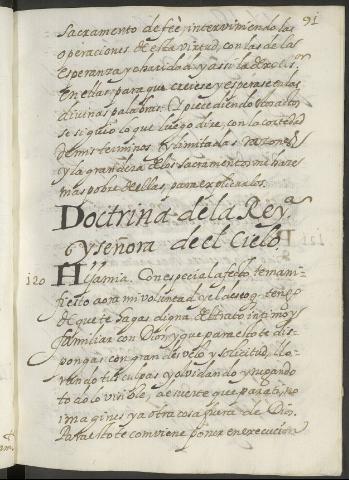 91
Sacramento de fè, interviniendo las
operaciones de esta virtud, con las de la
esperanza y charidad; y assi la
en ellas, para que creiese y esperase en las
divinas palabras. Y precediendo
se siguio lo que luego dirè, con la cortedad
de mis terminos y limitadas razones
y la grandeza de los Sacramentos me hace
mas pobre de ellas, para explicarlos.
Doctrina de la Reyª
y señora de el Cielo
120 Hija mia. Con especial afecto te mani-
fiesto aora mi voluntad, y el deseo q. tengo
de que te hagas digna del trato intimo y
familiar con Dios, y que para esto te dis-
pongas con gran desvelo y solicitud, llo-
rando tus culpas y olvidando y negando
todo lo visible, de suerte que para ti, no
imagines ya otra cosa fuera de Dios.
Para esto te conviene poner en execucion